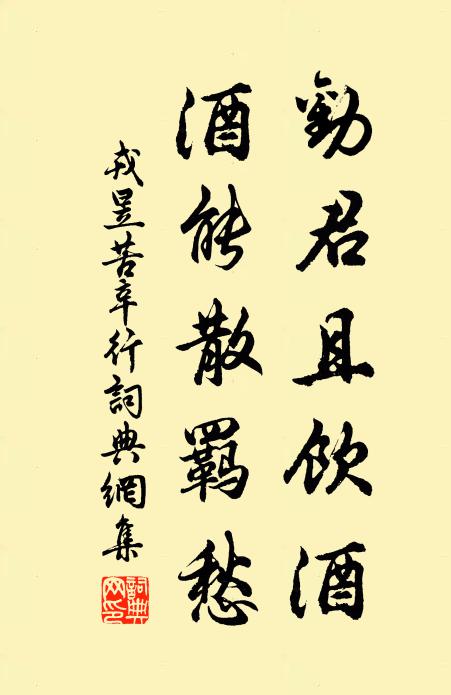 勸君且飲酒
酒能散羈愁
戎昱苦辛行詞典網集
詞典網印